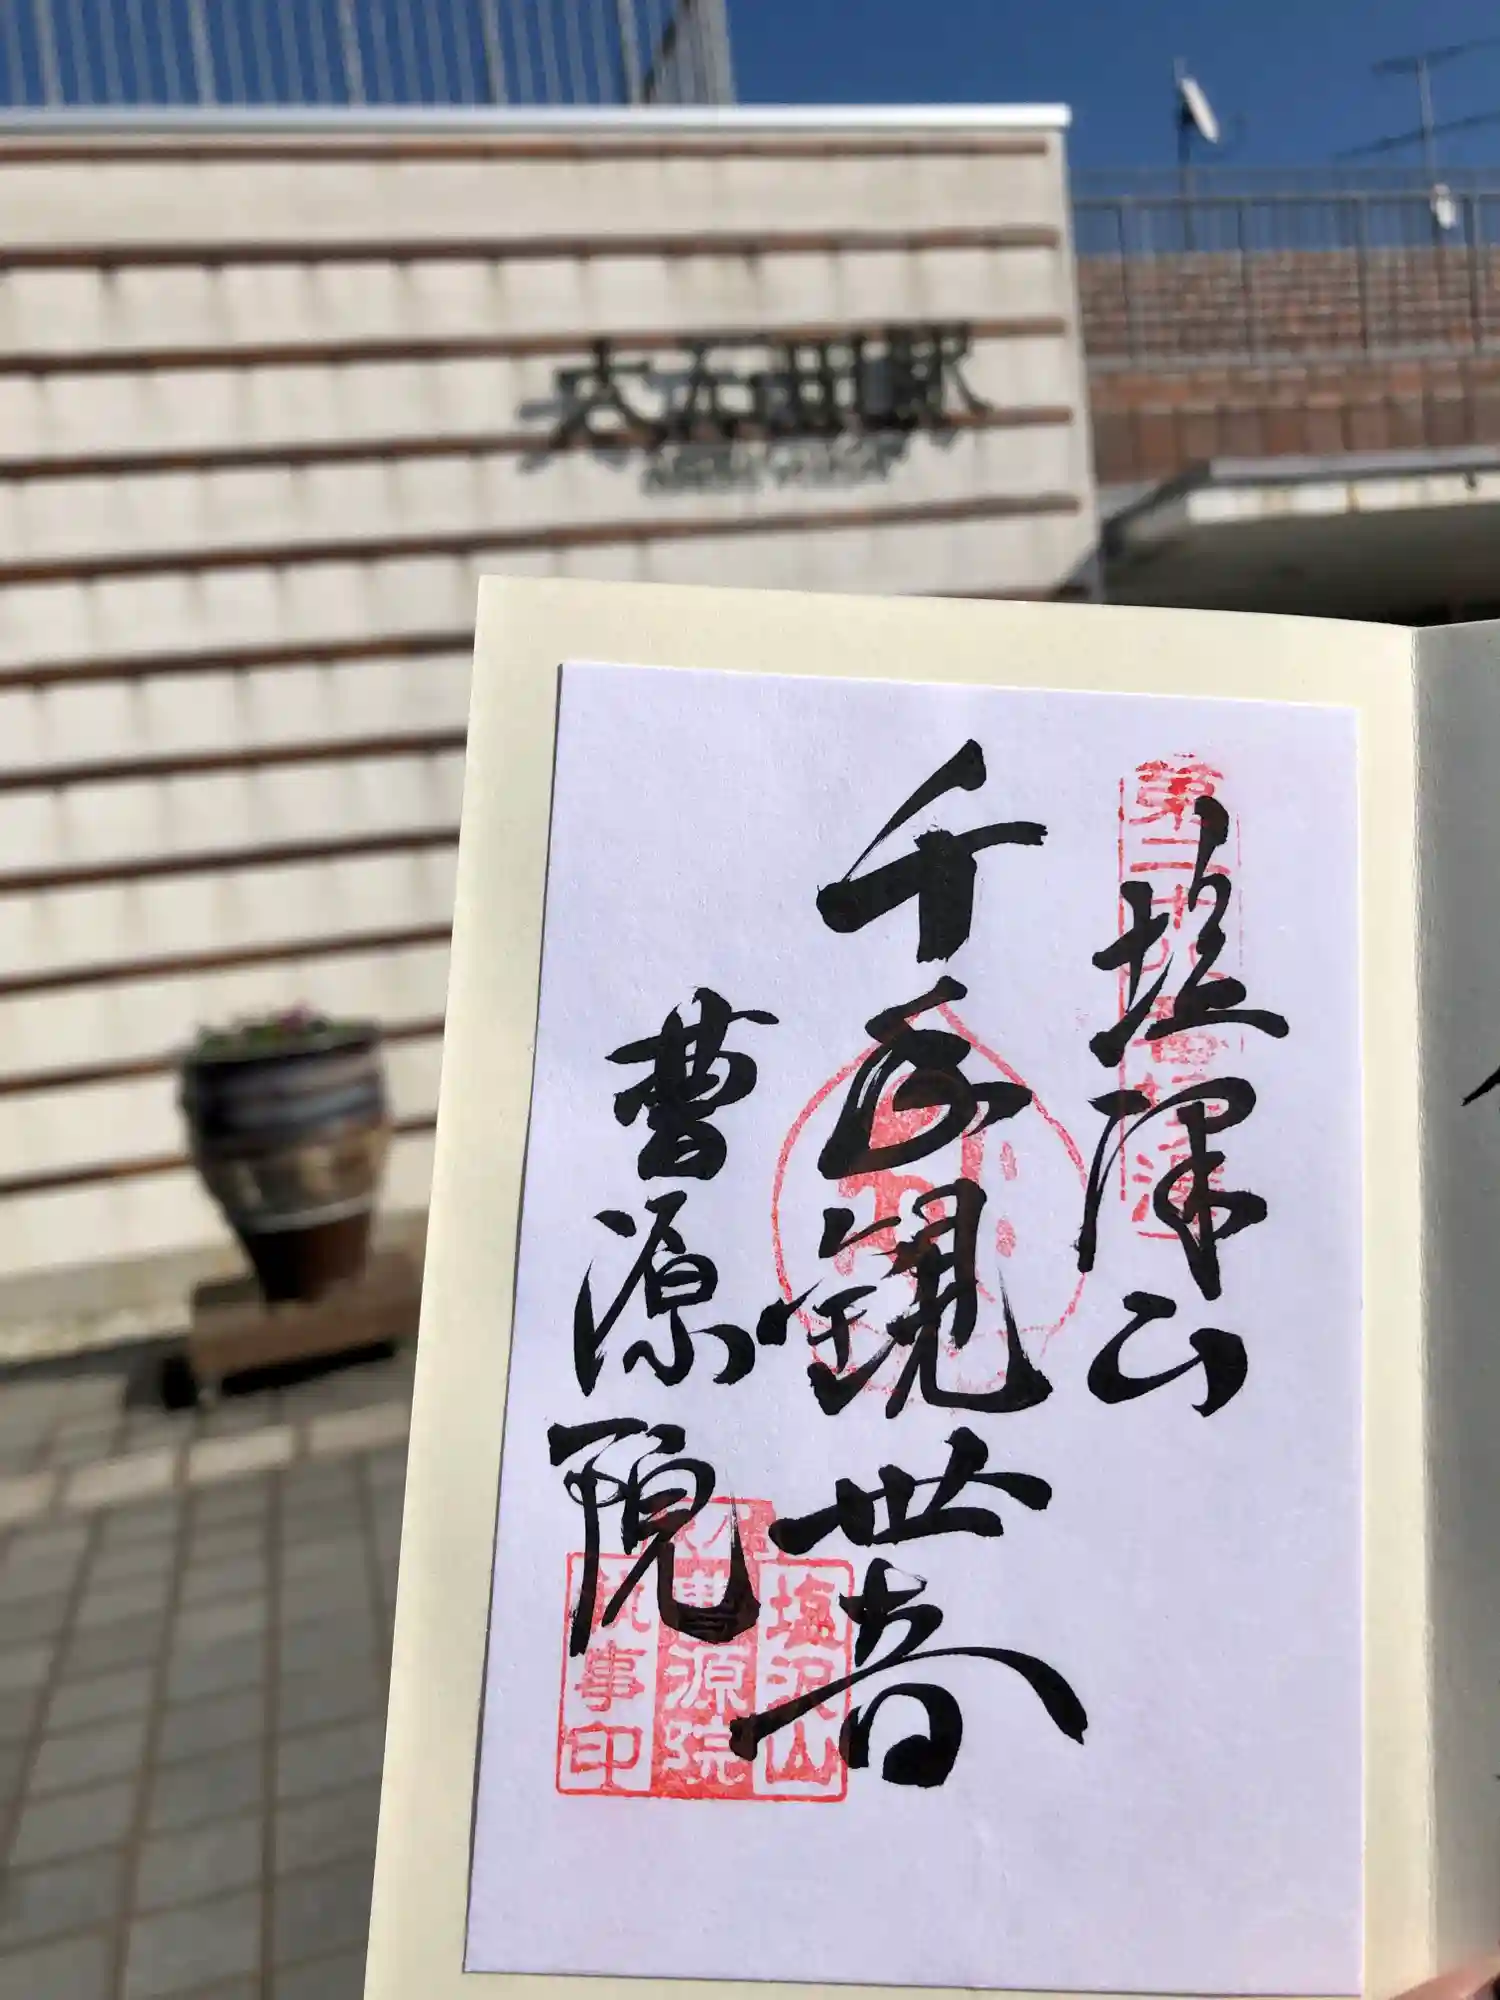 大石田駅
第二十八番
塩澤山
千手観世音
曹源院
塩沢山
曹源院
執事印